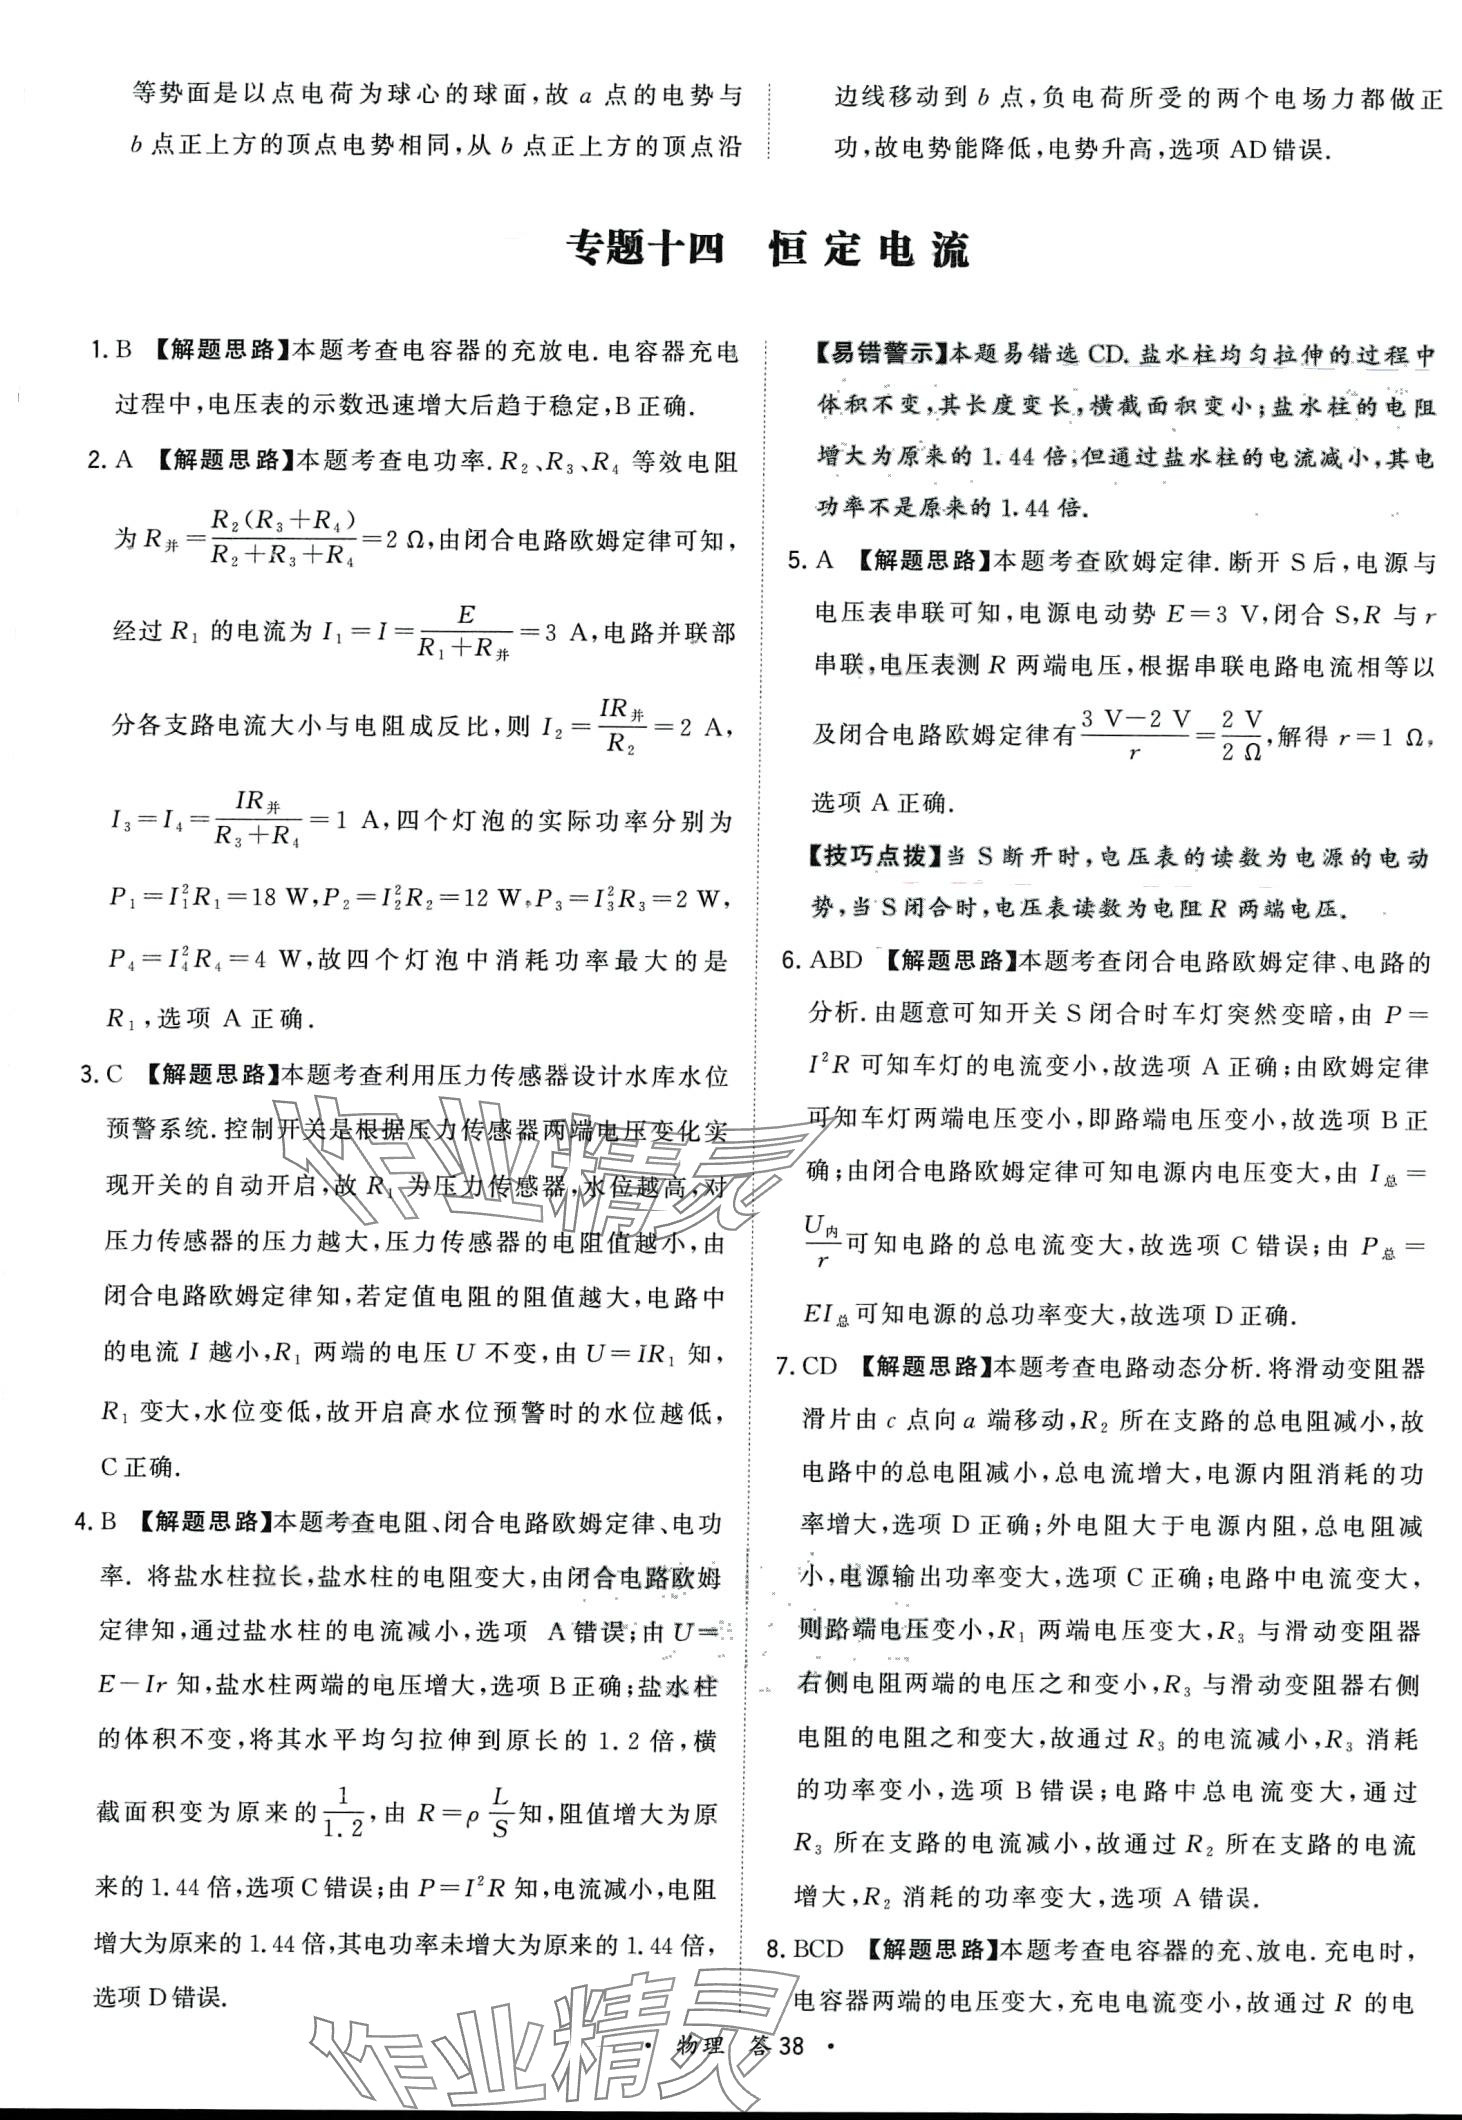 等势面是以点电荷为球心的球面,故 a 点的电势与
b 点正上方的顶点电势相同,从 b 点正上方的顶点沿
边线移动到 b 点,负电荷所受的两个电场力都做正
功,故电势能降低,电势升高,选项 AD 错误.
专题十四 恒定电流
1. B 【解题思路】本题考查电容器的充放电.电容器充电
过程中,电压表的示数迅速增大后趋于稳定,B 正确.
2. A 【解题思路】本题考查电功率.R₂、R₃、R₄ 等效电阻
为 R并=R₂(R₃+R₄)/(R₂+R₃+R₄)=2 Ω,由闭合电路欧姆定律可知,
经过 R₁ 的电流为 I₁=I=E/(R₁+R并)=3 A,电路并联部
分各支路电流大小与电阻成反比,则 I₂=IR并/R₂=2 A,
I₃=I₄=IR并/(R₃+R₄)=1 A,四个灯泡的实际功率分别为
P₁=I₁²R₁=18 W,P₂=I₂²R₂=12 W,P₃=I₃²R₃=2 W,
P₄=I₄²R₄=4 W,故四个灯泡中消耗功率最大的是
R₁,选项 A 正确.
3. C 【解题思路】本题考查利用压力传感器设计水库水位
预警系统.控制开关是根据压力传感器两端电压变化实
现开关的自动开启,故 R₁ 为压力传感器,水位越高,对
压力传感器的压力越大,压力传感器的电阻值越小,由
闭合电路欧姆定律知,若定值电阻的阻值越大,电路中
的电流 I 越小,R₁ 两端的电压 U 不变,由 U=IR₁ 知,
R₁ 变大,水位变低,故开启高水位预警时的水位越低,
C 正确.
4. B 【解题思路】本题考查电阻、闭合电路欧姆定律、电功
率. 将盐水柱拉长,盐水柱的电阻变大,由闭合电路欧姆
定律知,通过盐水柱的电流减小,选项 A 错误;由 U=
E-Ir 知,盐水柱两端的电压增大,选项 B 正确;盐水柱
的体积不变,将其水平均匀拉伸到原长的 1.2 倍,横
截面积变为原来的1/1.2,由 R=ρL/S知,阻值增大为原
来的 1.44 倍,选项 C 错误;由 P=I²R 知,电流减小,电阻
增大为原来的 1.44 倍,其电功率未增大为原来的 1.44 倍,
选项 D 错误.
【易错警示】本题易错选 CD.盐水柱均匀拉伸的过程中
体积不变,其长度变长,横截面积变小;盐水柱的电阻
增大为原来的 1.44 倍,但通过盐水柱的电流减小,其电
功率不是原来的 1.44 倍.
5. A 【解题思路】本题考查欧姆定律.断开 S 后,电源与
电压表串联可知,电源电动势 E=3 V,闭合 S,R 与 r
串联,电压表测 R 两端电压,根据串联电路电流相等以
及闭合电路欧姆定律有(3 V-2 V)/r=2 V/2 Ω,解得 r=1 Ω,
选项 A 正确.
【技巧点拨】当 S 断开时,电压表的读数为电源的电动
势,当 S 闭合时,电压表读数为电阻 R 两端电压.
6. ABD 【解题思路】本题考查闭合电路欧姆定律、电路的
分析.由题意可知开关 S 闭合时车灯突然变暗,由 P=
I²R 可知车灯的电流变小,故选项 A 正确;由欧姆定律
可知车灯两端电压变小,即路端电压变小,故选项 B 正
确;由闭合电路欧姆定律可知电源内电压变大,由 I总=
U内/r可知电路的总电流变大,故选项 C 错误;由 P总=
EI总可知电源的总功率变大,故选项 D 正确.
7. CD 【解题思路】本题考查电路动态分析.将滑动变阻器
滑片由 c 点向 a 端移动,R₂ 所在支路的总电阻减小,故
电路中的总电阻减小,总电流增大,电源内阻消耗的功
率增大,选项 D 正确;外电阻大于电源内阻,总电阻减
小,电源输出功率变大,选项 C 正确;电路中电流变大,
则路端电压变小,R₁ 两端电压变大,R₃ 与滑动变阻器
右侧电阻两端的电压之和变小,R₃ 与滑动变阻器右侧
电阻的电阻之和变大,故通过 R₃ 的电流减小,R₃ 消耗
的功率变小,选项 B 错误;电路中总电流变大,通过
R₃ 所在支路的电流减小,故通过 R₂ 所在支路的电流
增大,R₂ 消耗的功率变大,选项 A 错误.
8. BCD 【解题思路】本题考查电容器的充、放电.充电时,
电容器两端的电压变大,充电电流变小,故通过 R 的电
• 物理 答 38 •
作业精灵
作业精灵